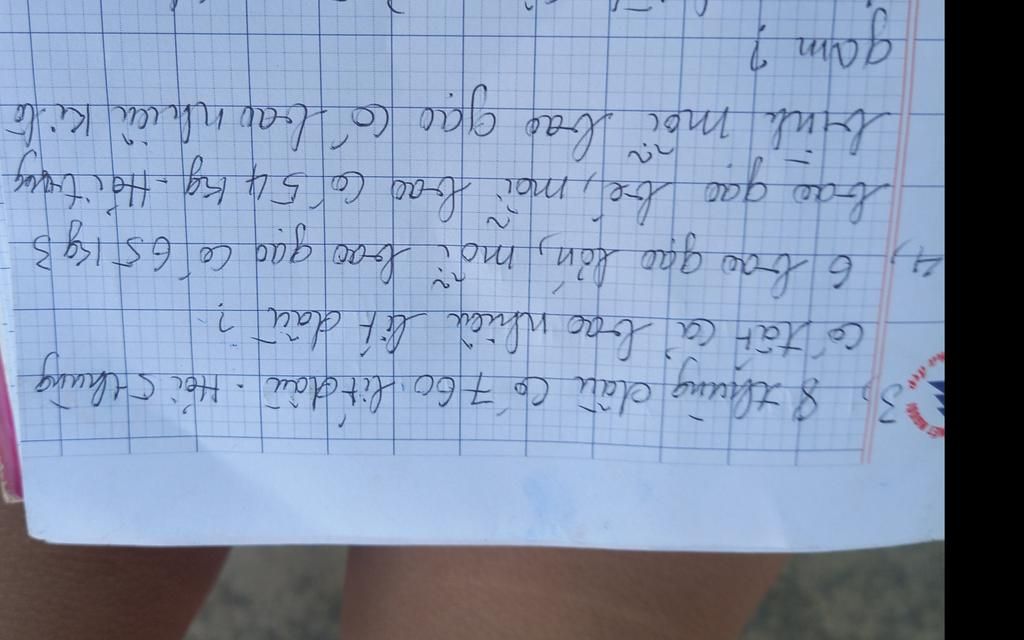 3) 8 thùng dầu có 760 lít dầu. Hỏi 5 thùng
có tất cả bao nhiêu lít dầu ?
4, 6 bao gạo lớn, mỗi bao gạo có 65 kg 3
bao gạo bé, mỗi bao có 54 kg. Hỏi trung
bình mỗi bao gạo có bao nhiêu ki lô
gam ?